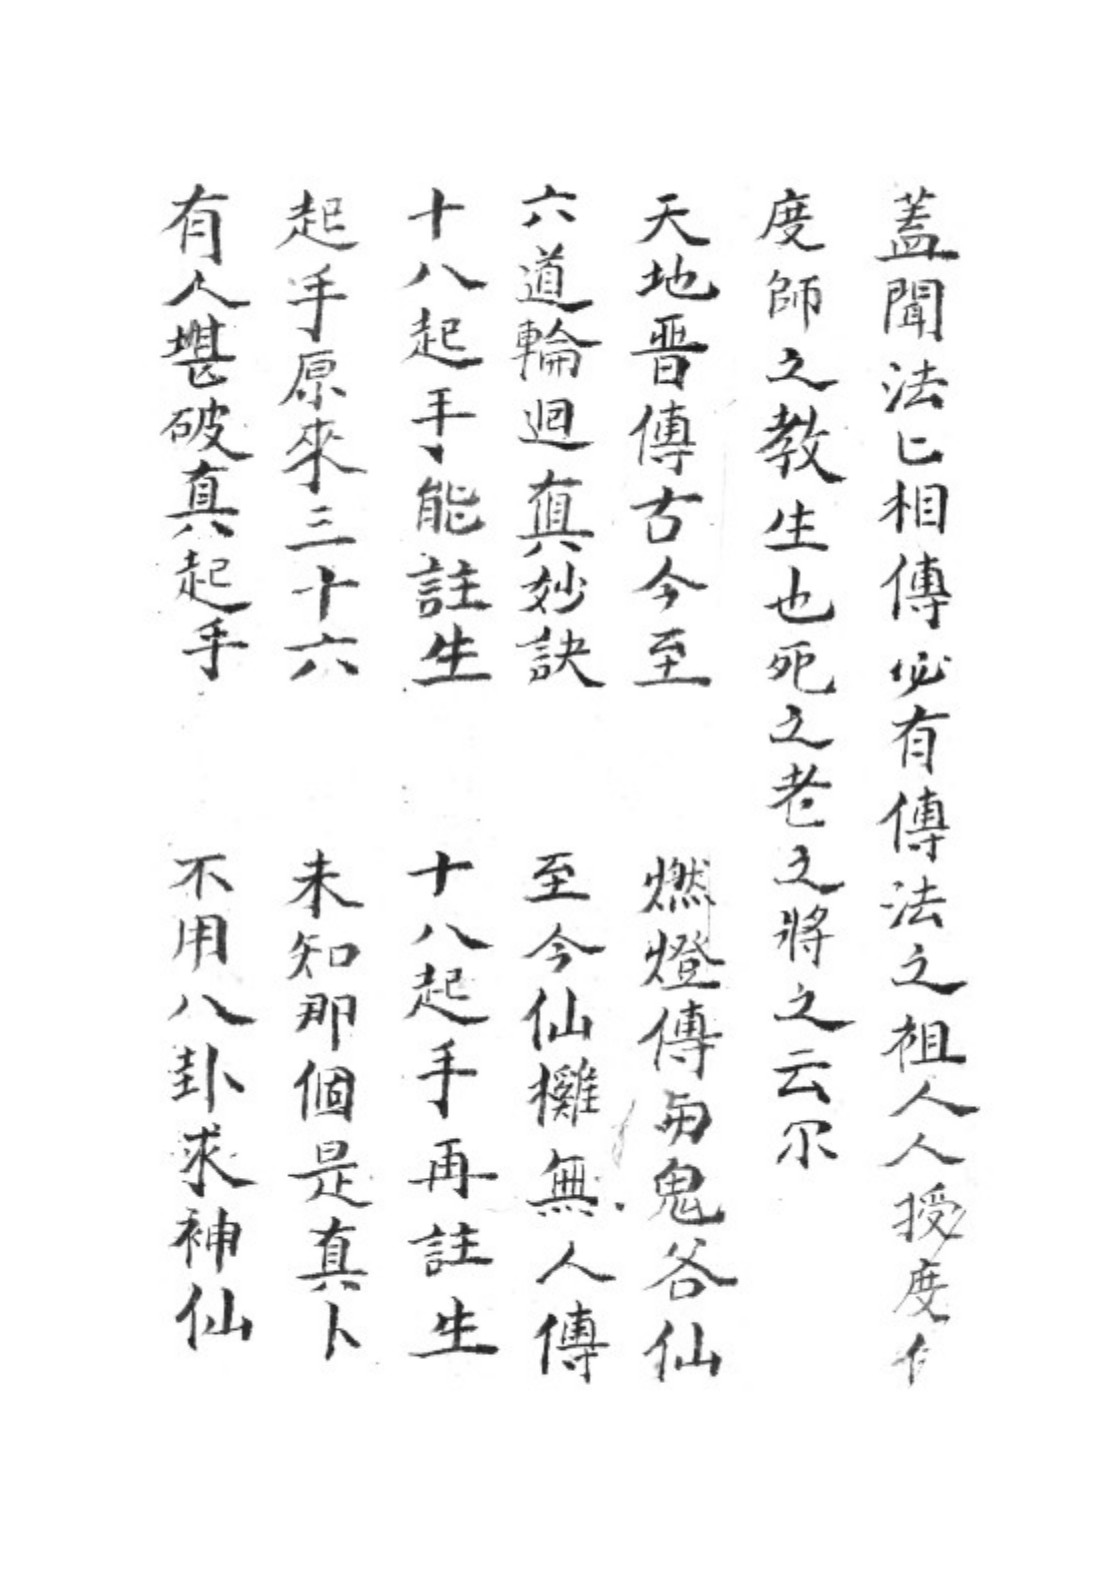 蓋聞法匕相傳必有傳法之祖人人授度
度師之教生也死之老之將之云尔
天地晋傳古今至　燃燈傳与鬼谷仙
六道輪迴真妙訣　至今仙攤無人傳
十八起手能註生　十八起手再註生
起手原來三十六　未知那個是真卜
有人堪破真起手　不用八卦求神仙